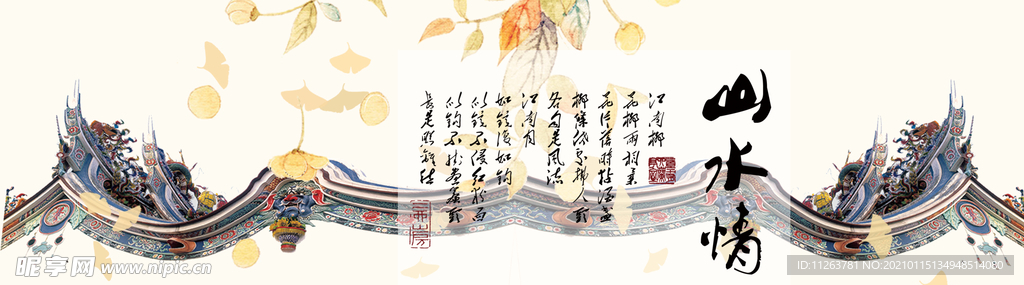 山水情
江南柳
花柳两相柔
花片落时粘酒盏
柳条低处拂人头
各自是风流
江南月
如镜复如钩
似镜不侵红粉面
似钩不挂画帘头
长是照离愁
昵享网 www.nipic.cn
ID:11263781 NO:20210115134948514080